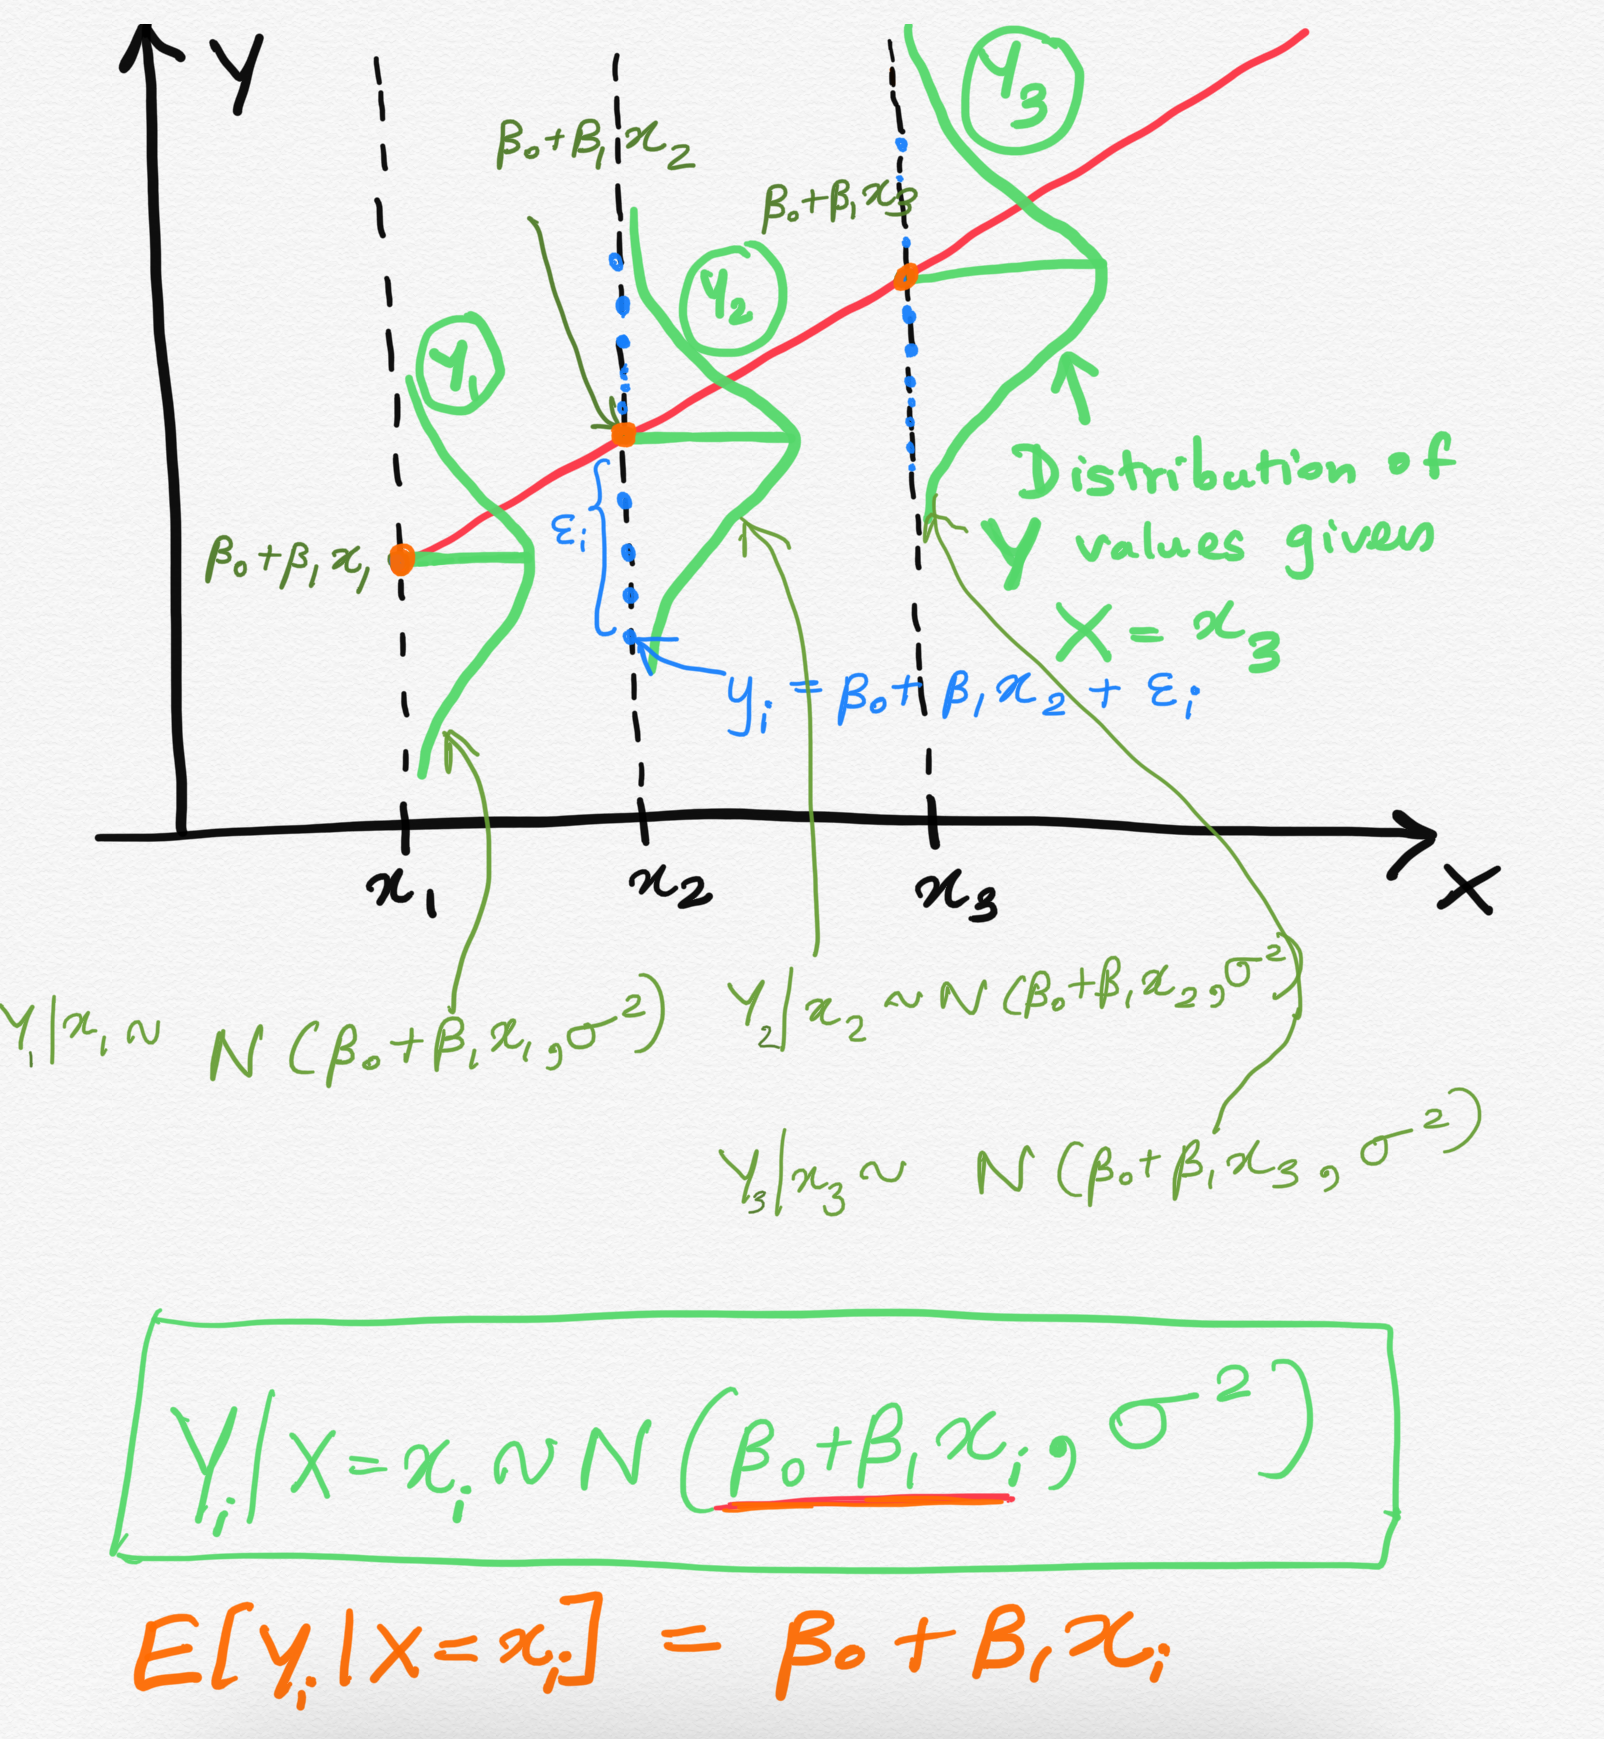 Y
Y₃
β₀+β₁x₂
β₀+β₁x₃
Y₂
Y₁
Distribution of
Y values given
X = x₃
εᵢ
β₀+β₁x₁
yᵢ = β₀+β₁x₂ + εᵢ
x₁ x₂ x₃ X
Y₁|x₁ ~ N(β₀+β₁x₁,σ²)
Y₂|x₂ ~ N(β₀+β₁x₂,σ²)
Y₃|x₃ ~ N(β₀+β₁x₃,σ²)
Yᵢ|X=xᵢ ~ N(β₀+β₁xᵢ,σ²)
E[Yᵢ|X=xᵢ] = β₀+β₁xᵢ